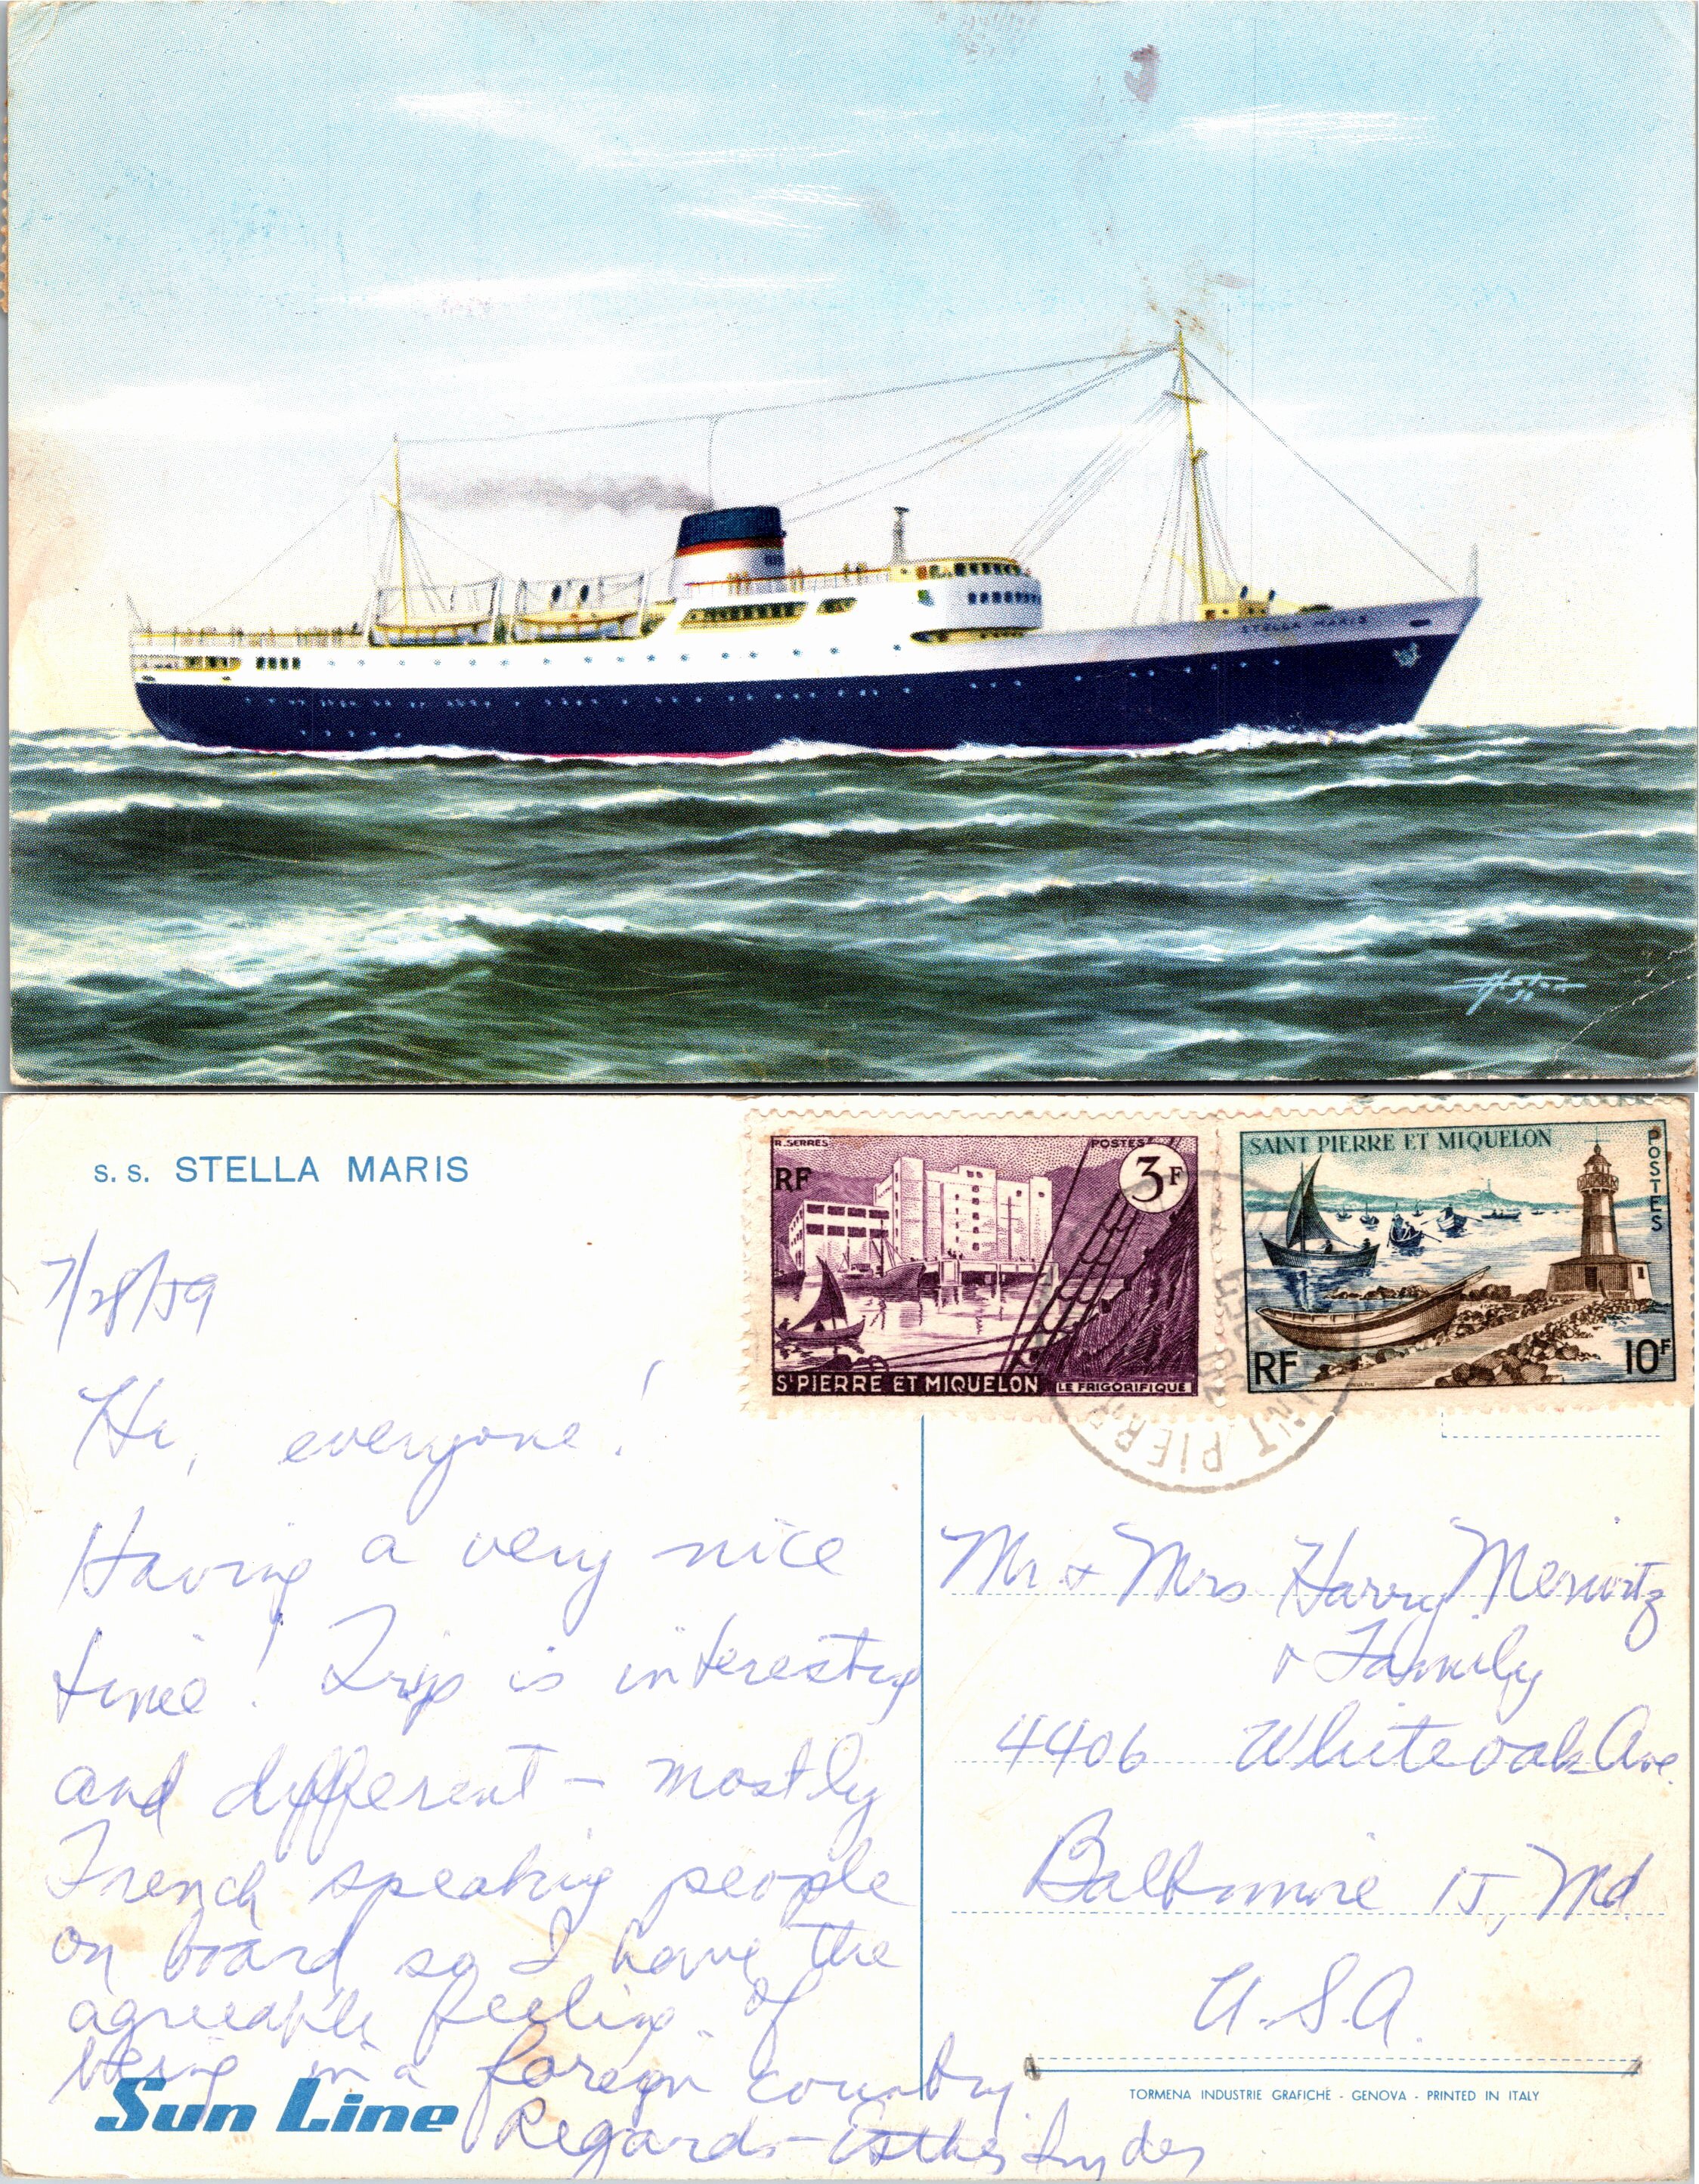 STELLA MARIS
58
S.S. STELLA MARIS
R. SERRES
POSTES
RF
3F
ST PIERRE ET MIQUELON
LE FRIGORIFIQUE
SAINT PIERRE ET MIQUELON
POSTES
RF
10F
SAINT PIERRE
7/28/59
Hi, everyone!
Having a very nice
time! Trip is interesting
and different - mostly
French speaking people
on board so I have the
agreeable feeling of
being in a foreign country.
Regards - Esther Snyder
Sun Line
Mr & Mrs Harry Merwitz
& Family
4406 Whiteoak Ave
Baltimore 15, Md.
U.S.A.
TORMENA INDUSTRIE GRAFICHE - GENOVA - PRINTED IN ITALY